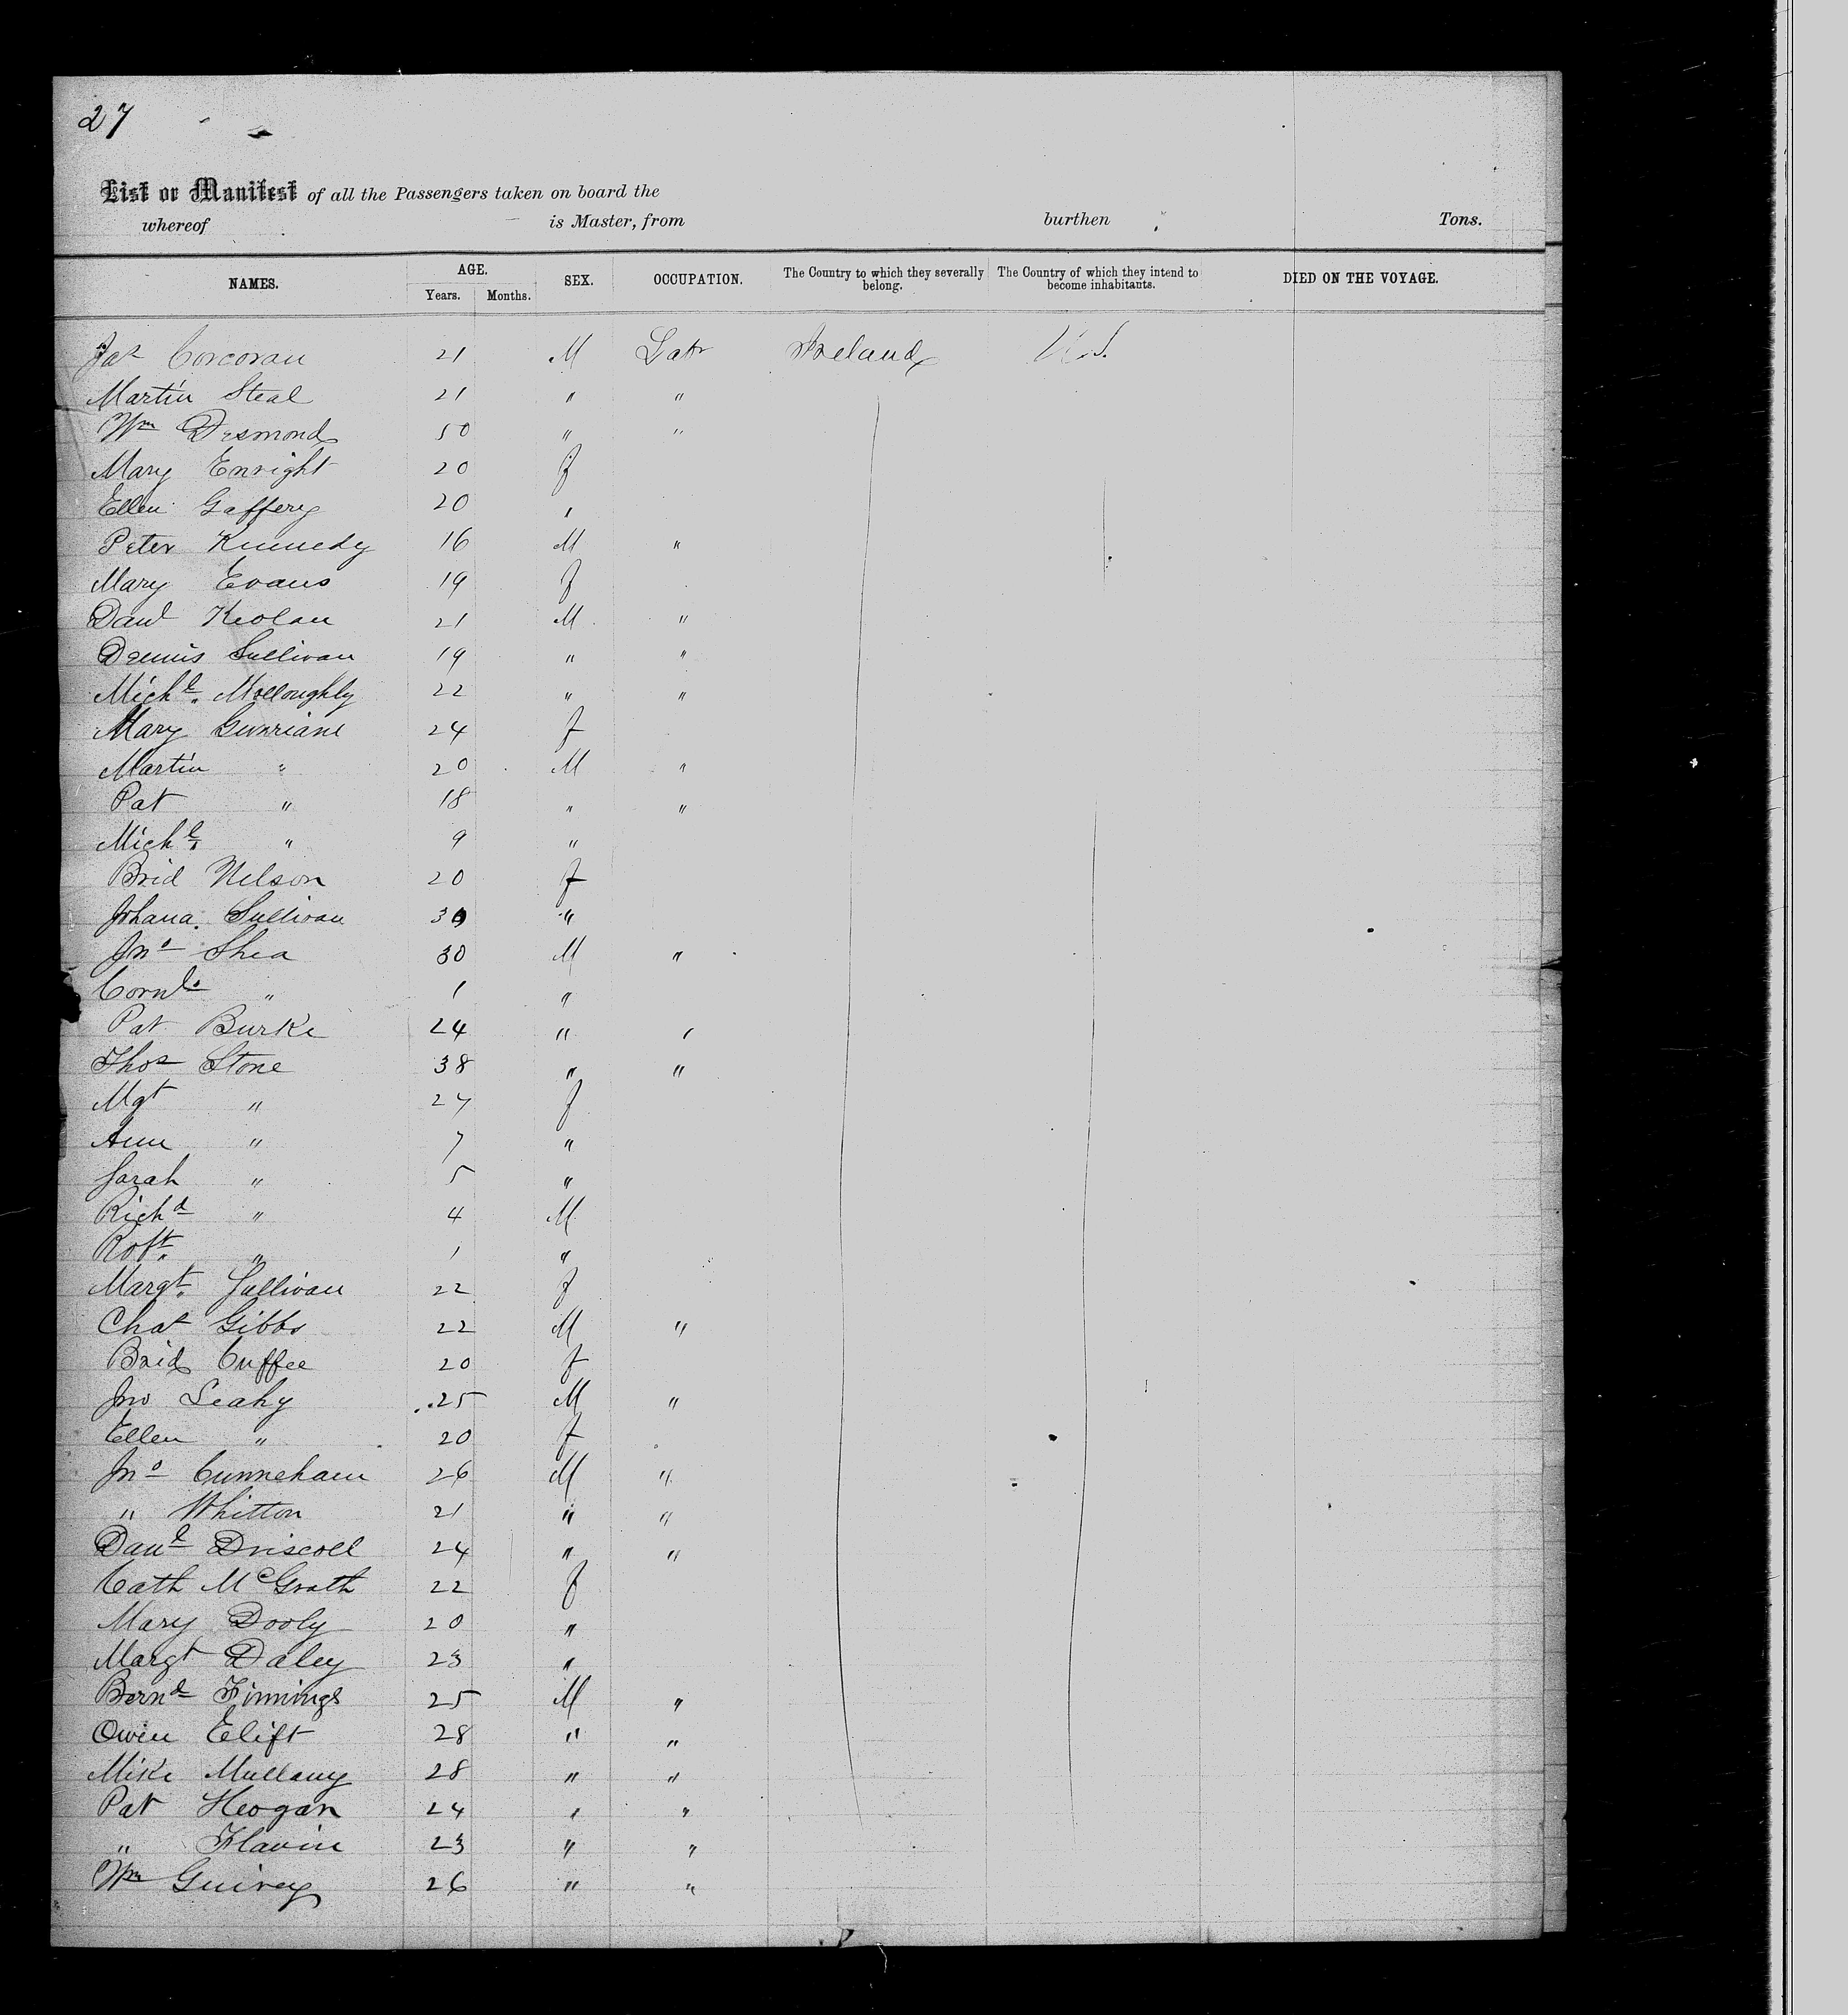 27
List or Manifest of all the Passengers taken on board the
whereof is Master, from burthen Tons.
NAMES. AGE. Years. Months. SEX. OCCUPATION. The Country to which they severally belong. The Country of which they intend to become inhabitants. DIED ON THE VOYAGE.
Jas Corcoran 21 M Labr Ireland U.S.
Martin Steal 21 " "
Wm Desmond 50 " "
Mary Enright 20 f
Ellen Gaffery 20 "
Peter Kennedy 16 M "
Mary Evans 19 f
Danl Keolan 21 M "
Dennis Sullivan 19 " "
Michl. Molloughly 22 " "
Mary 24 f
Martin " 20 M "
Pat " 18 " "
Michl. " 9 "
Brid Nelson 20 f
Johana Sullivan 30 "
Jno Shea 30 M "
Cornls " 1 "
Pat Burke 24 " "
Thos Stone 38 " "
Mgt " 27 f
Ann " 7 "
Sarah " 5 "
Richd " 4 M
Robt. " 1 "
Margt. Sullivan 22 f
Chas Gibbs 22 M "
Brid Cuffee 20 f
Jno Leahy 25 M "
Ellen " 20 f
Jno Cunneham 26 M "
" Whitton 21 " "
Danl Driscoll 24 " "
Cath McGrath 22 f
Mary Dooly 20 "
Margt Daley 23 "
Bernd Finnings 25 M "
Owen Clift 28 " "
Mike Mullany 28 " "
Pat Heogan 24 " "
" Flavin 23 " "
Wm Guirey 26 " "